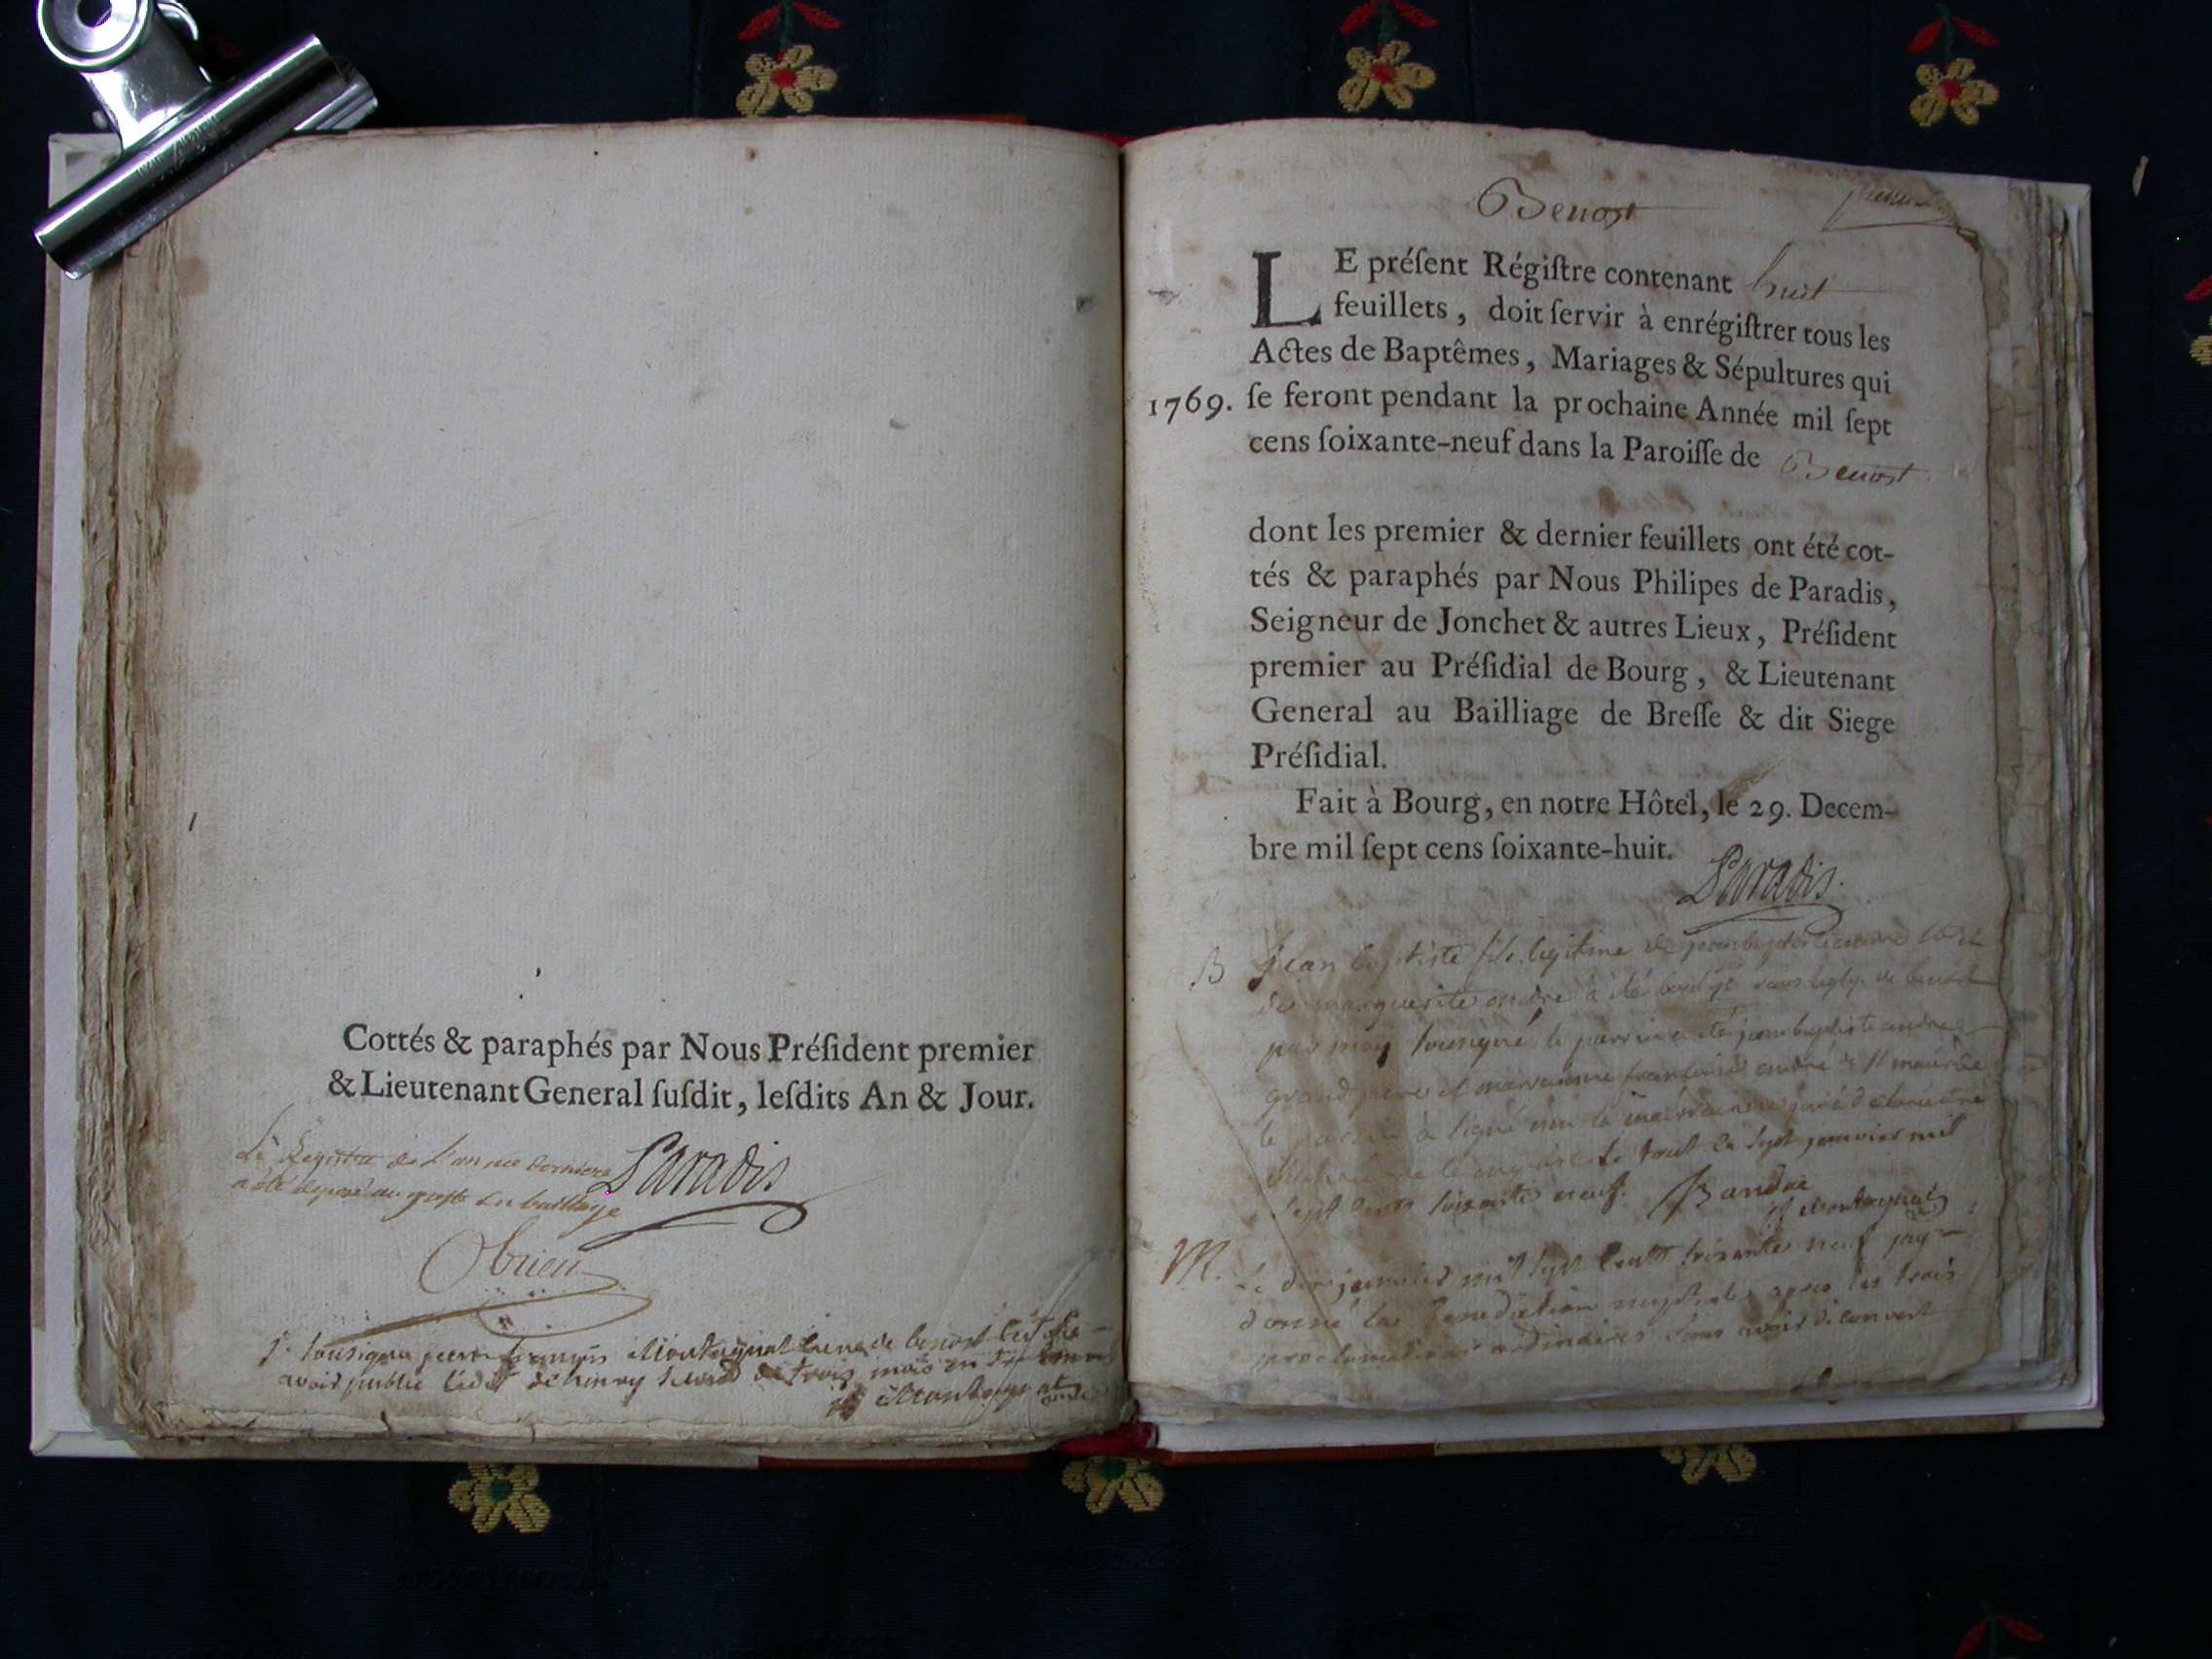 Cottés & paraphés par Nous Préſident premier
& Lieutenant General ſuſdit, leſdits An & Jour.
Le Registre de L'année derniere
a été deposé au greffe du bailliage
Paradis
Obrien
Je soussigné curé de benost
avoir publié l'edit d'henry second de trois mois en trois mois
Montagnat curé
Benost
premier
LE préſent Régiſtre contenant huit
feuillets, doit ſervir à enrégiſtrer tous les
Actes de Baptêmes, Mariages & Sépultures qui
1769. ſe feront pendant la prochaine Année mil ſept
cens ſoixante-neuf dans la Paroiſſe de Benost
dont les premier & dernier feuillets ont été cot-
tés & paraphés par Nous Philipes de Paradis,
Seigneur de Jonchet & autres Lieux, Préſident
premier au Préſidial de Bourg, & Lieutenant
General au Bailliage de Breſſe & dit Siege
Préſidial.
Fait à Bourg, en notre Hôtel, le 29. Decem-
bre mil ſept cens ſoixante-huit.
Paradis
B Jean baptiste fils legitime de
de marguerite andre a été de benost
par moy sousigné le parrain a été jean baptiste andre
grand pere et marrainne andre de st maurice
le parrain a signé non la marrainne
le tout le sept janvier mil
sept cents soixante neuf. B andre
Montagnat
M. Le dix janvier mil sept cents soixante neuf jay
donné la benediction nuptiale apres les trois
proclamations ordinaires sans avoir decouvert